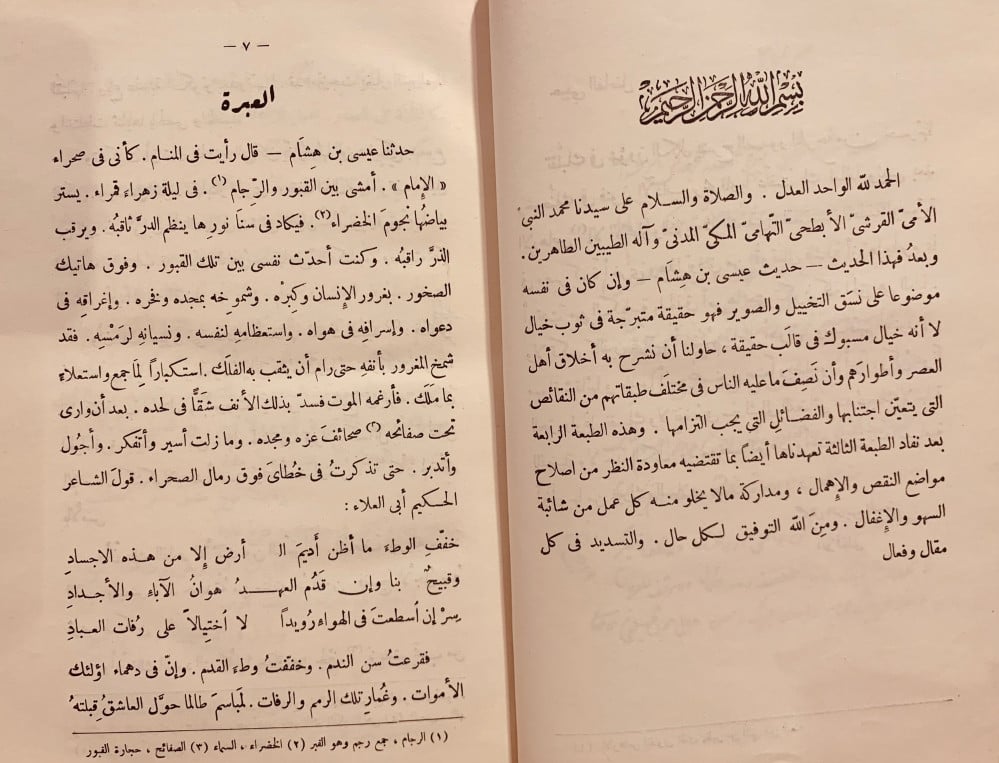 بسم الله الرحمن الرحيم
الحمد لله الواحد العدل . والصلاة والسلام على سيدنا محمد النبى
الأمىّ القرشىّ الأبطحىّ التّهامىّ المكىّ المدنىّ وآله الطيبين الطاهرين .
وبعدُ فهذا الحديث — حديث عيسى بن هِشَام — وإن كان فى نفسه
موضوعا على نسَق التخييل والصوير فهو حقيقة متبرّجة فى ثوب خيال
لا أنه خيال مسبوك فى قالَب حقيقة ، حاولنا أن نشرح به أخلاق أهل
العصر وأطوارَهم وأن نَصِفَ ما عليه الناس فى مختلَف طبقاتهم من النقائص
التى يتعيّن اجتنابها والفضائل التى يجب التزامها . وهذه الطبعة الرابعة
بعد نفاد الطبعة الثالثة تعهدناها أيضاً بما تقتضيه معاودة النظر من اصلاح
مواضع النقص والإهمال ، ومداركة مالا يخلو منه كل عمل من شائبة
السهو والإغفال . ومِنَ الله التوفيق لكل حال . والتسديد فى كل
مقال وفعال
— ٧ —
العبرة
حدثنا عيسى بن هِشَام — قال رأيت فى المنام . كأنى فى صحراء
« الإمام » . أمشى بين القبور والرِّجام (١) . فى ليلة زهراء قمراء . يستر
بياضُها نجومَ الخضراء (٢) . فيكاد فى سنَا نورِها ينظم الدرَّ ثاقبُه . ويرقب
الذرَّ راقبُه . وكنت أحدّث نفسى بين تلك القبور . وفوق هاتيك
الصخور . بغرور الإنسان وكِبرْه . وشموخه بمجده وفخره . وإغراقِه فى
دعواه . وإسرافِه فى هواه . واستعظامهِ لنفسه . ونسيانهِ لرَمْسهِ . فقد
شمخ المغرور بأنفه حتى رام أن يثقب به الفلَك . استكباراً لِمَا جمع واستعلاءً
بما ملَكَ . فأرغمه الموت فسدّ بذلك الأنف شَقًّا فى لحده . بعد أن وارى
تحت صفائحه (٣) صحائفَ عزه ومجده . وما زلت أسير وأتفكر . وأجُول
وأتدبر . حتى تذكرتُ فى خُطاىَ فوق رمال الصحراء . قولَ الشاعر
الحكيم أبى العلاء :
خفّفِ الوطءَ ما أظن أَديمَ الـ أرض إلا من هذه الاجسادِ
وقبيحٌ بنا وإن قَدُم العهـدُ هوانُ الآباءِ والأجدادِ
سِرْ إن أسطعتَ فى الهواء رُويداً لا اُختِيالاً على رُفات العبادِ
فقرعتُ سن الندم . وخفّفتُ وطءَ القدم . وإنّ فى دهماء اؤلئك
الأموات . وغُمارِ تلك الرمم والرفات . لمَباسمَ طالما حوَّل العاشقُ قِبلتَهُ
(١) الرجام ، جمع رجم وهو القبر (٢) الخضراء ، السماء (٣) الصفائح ، حجارة القبور